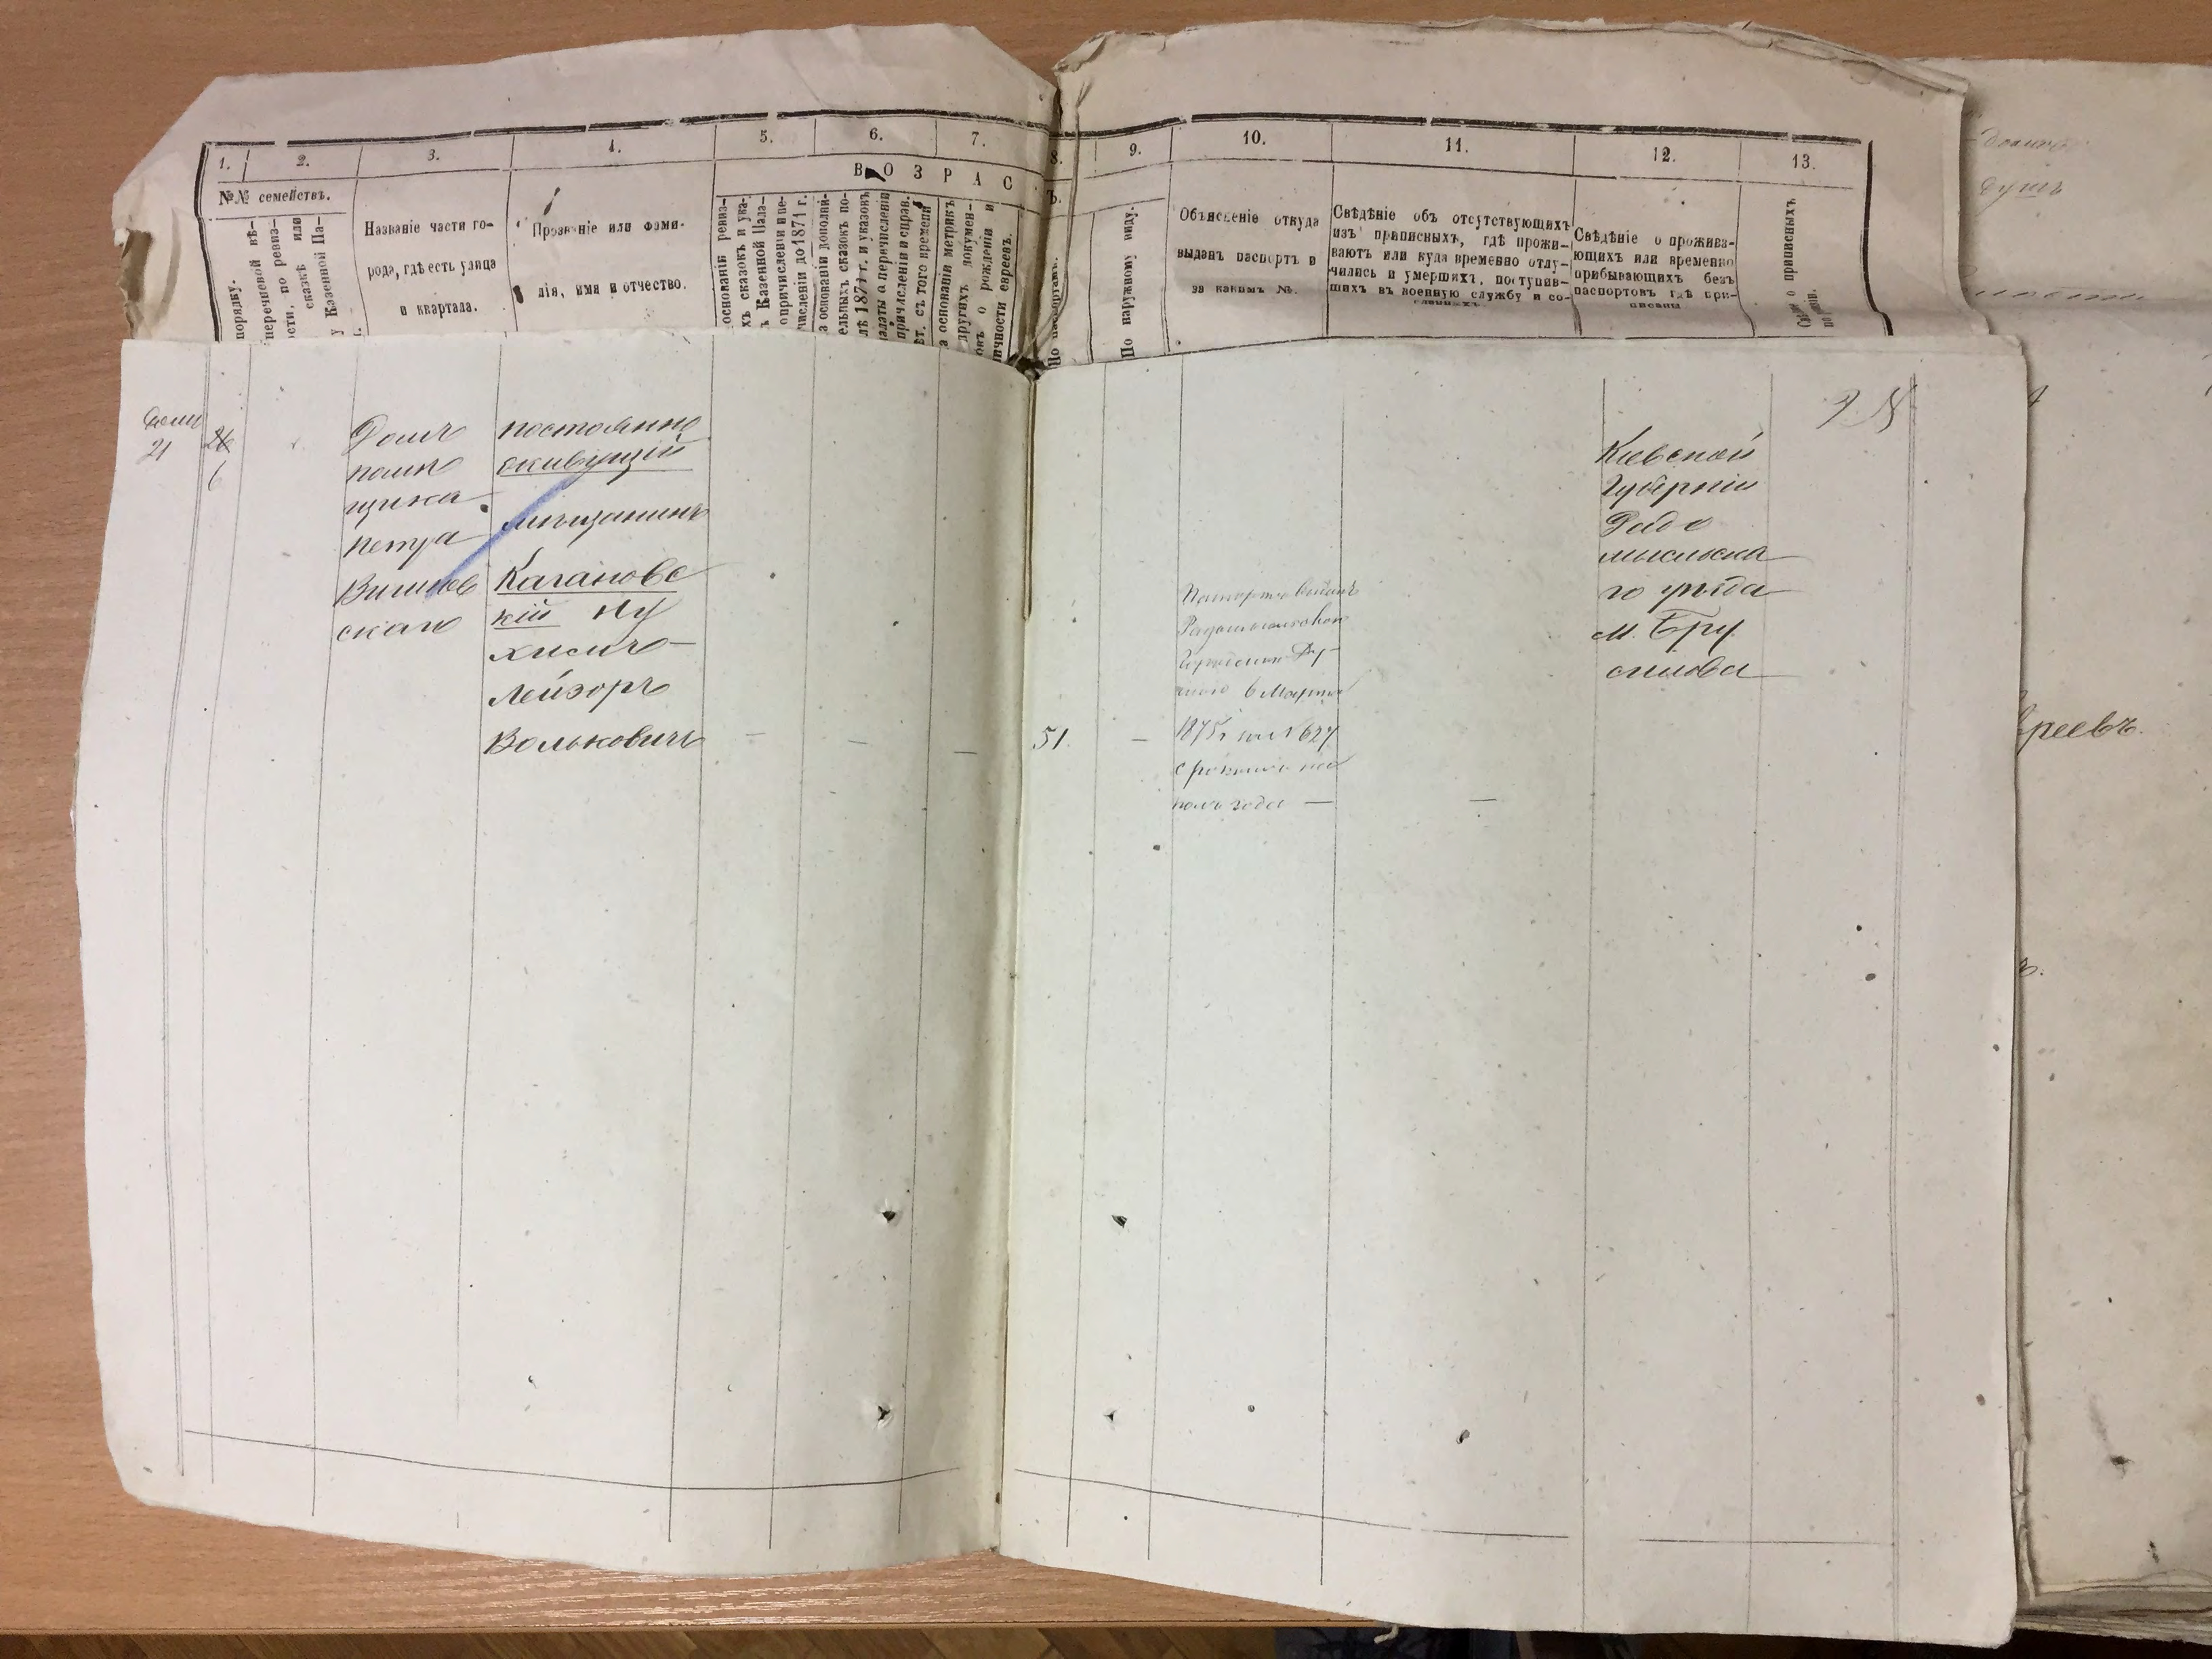 1. 2. 3. 4. 5. 6. 7. 8. 9. 10. 11. 12. 13.
ВОЗРАС
Ъ.
№№ семействъ.
порядку.
перечневой вѣ-
ости, по ревиз-
сказкѣ или
у Казенной Па-
Названіе части го-
рода, гдѣ есть улица
и квартала.
Прозваніе или фами-
лія, имя и отчество.
основаніи ревиз-
хъ сказокъ и ука-
ъ Казенной Пала-
о причисленіи и пе-
численіи до 1871 г.
а основаніи дополни-
ельныхъ сказокъ по-
лѣ 1871 г. и указокъ
алаты о перечисленіи
причисленіи и справ.
ѣт. съ того времени
а основаніи метрикъ
другихъ докумен-
овъ о рожденіи и
ичности евреевъ.
По паспортамъ.
По наружному виду.
Объясненіе откуда
выданъ паспортъ и
за какимъ №.
Свѣдѣніе объ отсутствующихъ
изъ приписныхъ, гдѣ прожи-
ваютъ или куда временно отлу-
чились и умершихъ, поступив-
шихъ въ военную службу и со-
Свѣдѣніе о прожива-
ющихъ или временно
прибывающихъ безъ
паспортовъ гдѣ при-
писаны
о приписныхъ
21
6
Домъ
помѣ
щика
Петра
Вишнев
скаго
постоянно
живущій
мѣщанинъ
Кагановс
кій Ну
химъ
Лейзоръ
Вольковичъ
— — —
51.
—
Паспортъ выданъ
Радомысльскою
6 Марта
1875 г за № 627
срокомъ на
полъ года —
—
Кіевской
Губерніи
Радо
мысльска
го уѣзда
м. Бру
силова
душъ
реевъ.